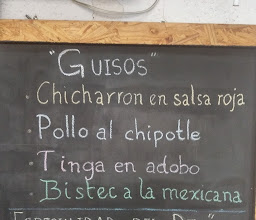 "GUISOS"
Chicharron en salsa roja
· Pollo al chipotle
· Tinga en adobo
· Bistec a la mexicana